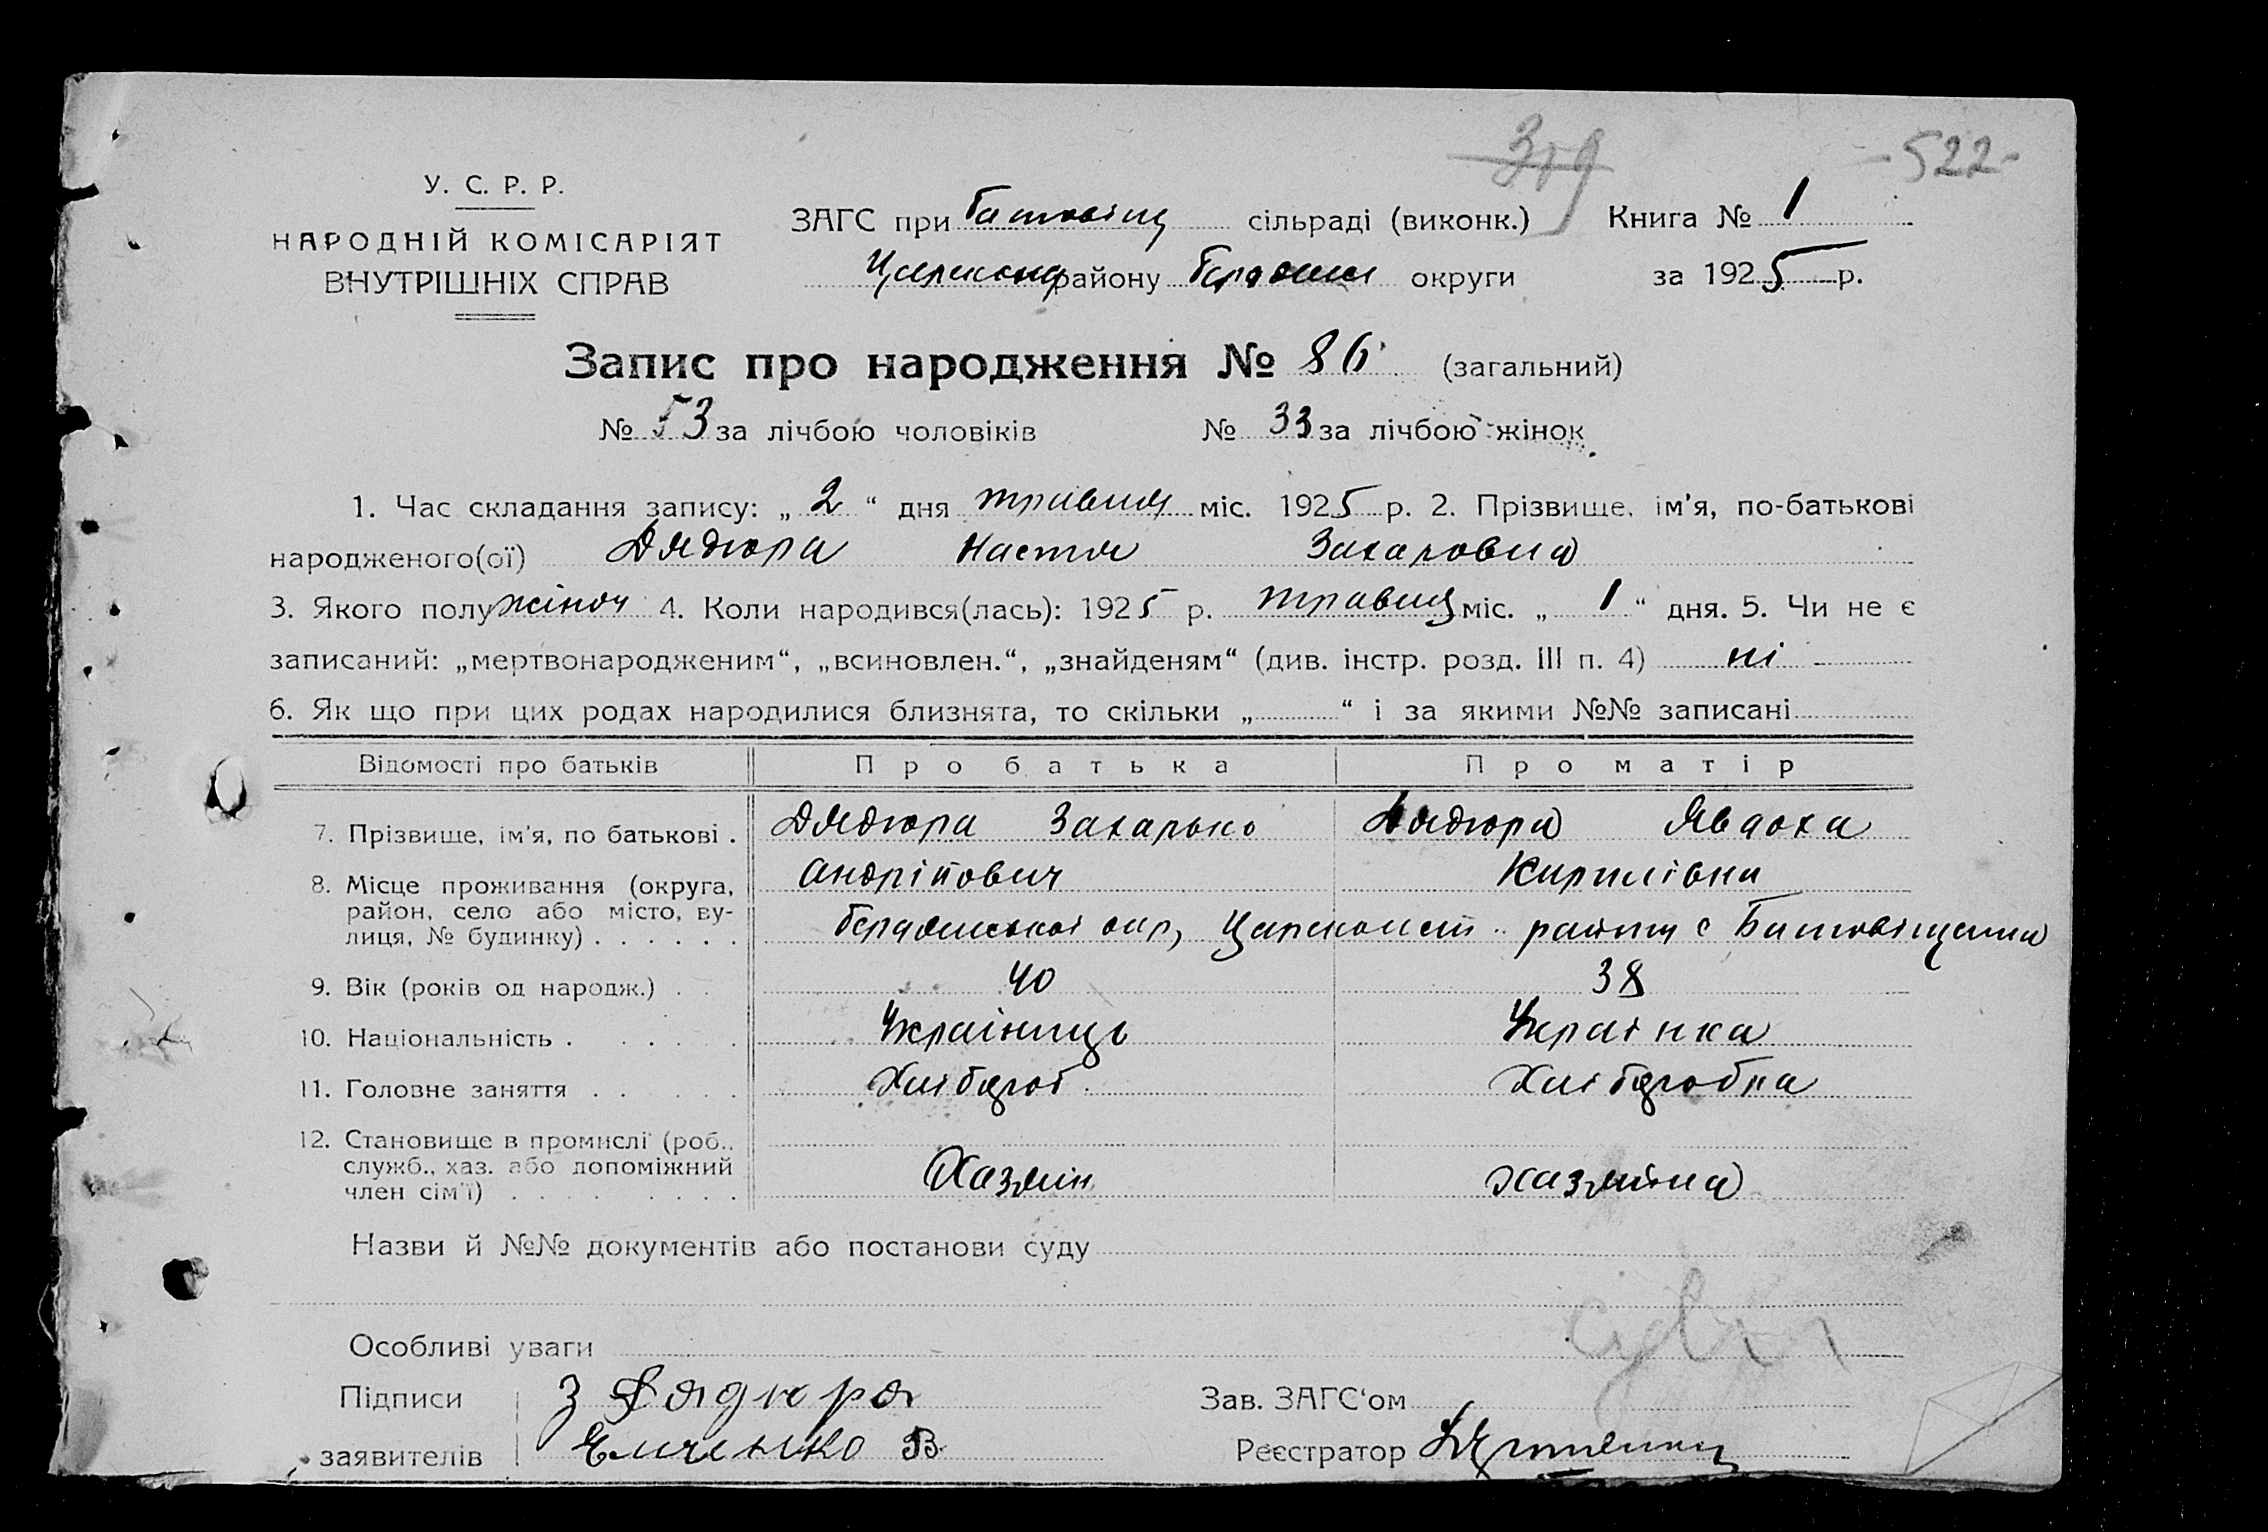 319
-522-
У. С. Р. Р.
НАРОДНІЙ КОМІСАРІЯТ
ВНУТРІШНІХ СПРАВ
ЗАГС при сільраді (виконк.) Книга № 1
району округи за 1925 р.
Запис про народження № 86 (загальний)
№ 53 за лічбою чоловіків № 33 за лічбою жінок
1. Час складання запису: „ 2 “ дня травня міс. 1925 р. 2. Прізвище, ім'я, по-батькові
народженого(ої) Дядюра Настя Захаровна
3. Якого полу жіноч 4. Коли народився(лась): 1925 р. травня міс. „ 1 “ дня. 5. Чи не є
записаний: „мертвонародженим“, „всиновлен.“, „знайденям“ (див. інстр. розд. III п. 4) ні
6. Як що при цих родах народилися близнята, то скільки „ “ і за якими №№ записані
Відомості про батьків Про батька Про матір
7. Прізвище, ім'я, по батькові . Дядюра Захарько Дядюра Явдоха
Андрійович Кирилівна
8. Місце проживання (округа,
район, село або місто, ву-
лиця, № будинку) . . . . . . окр, району с
9. Вік (років од народж.) . . 40 38
10. Національність . . . . . Українець Українка
11. Головне заняття . . . . . Хлібороб Хліборобка
12. Становище в промислі (роб.,
служб., хаз. або допоміжний
член сім'ї) . . . . . . . . Хазяїн хазяйка
Назви й №№ документів або постанови суду
Особливі уваги
Підписи З Дядюра Зав. ЗАГС'ом
заявителів В Реєстратор